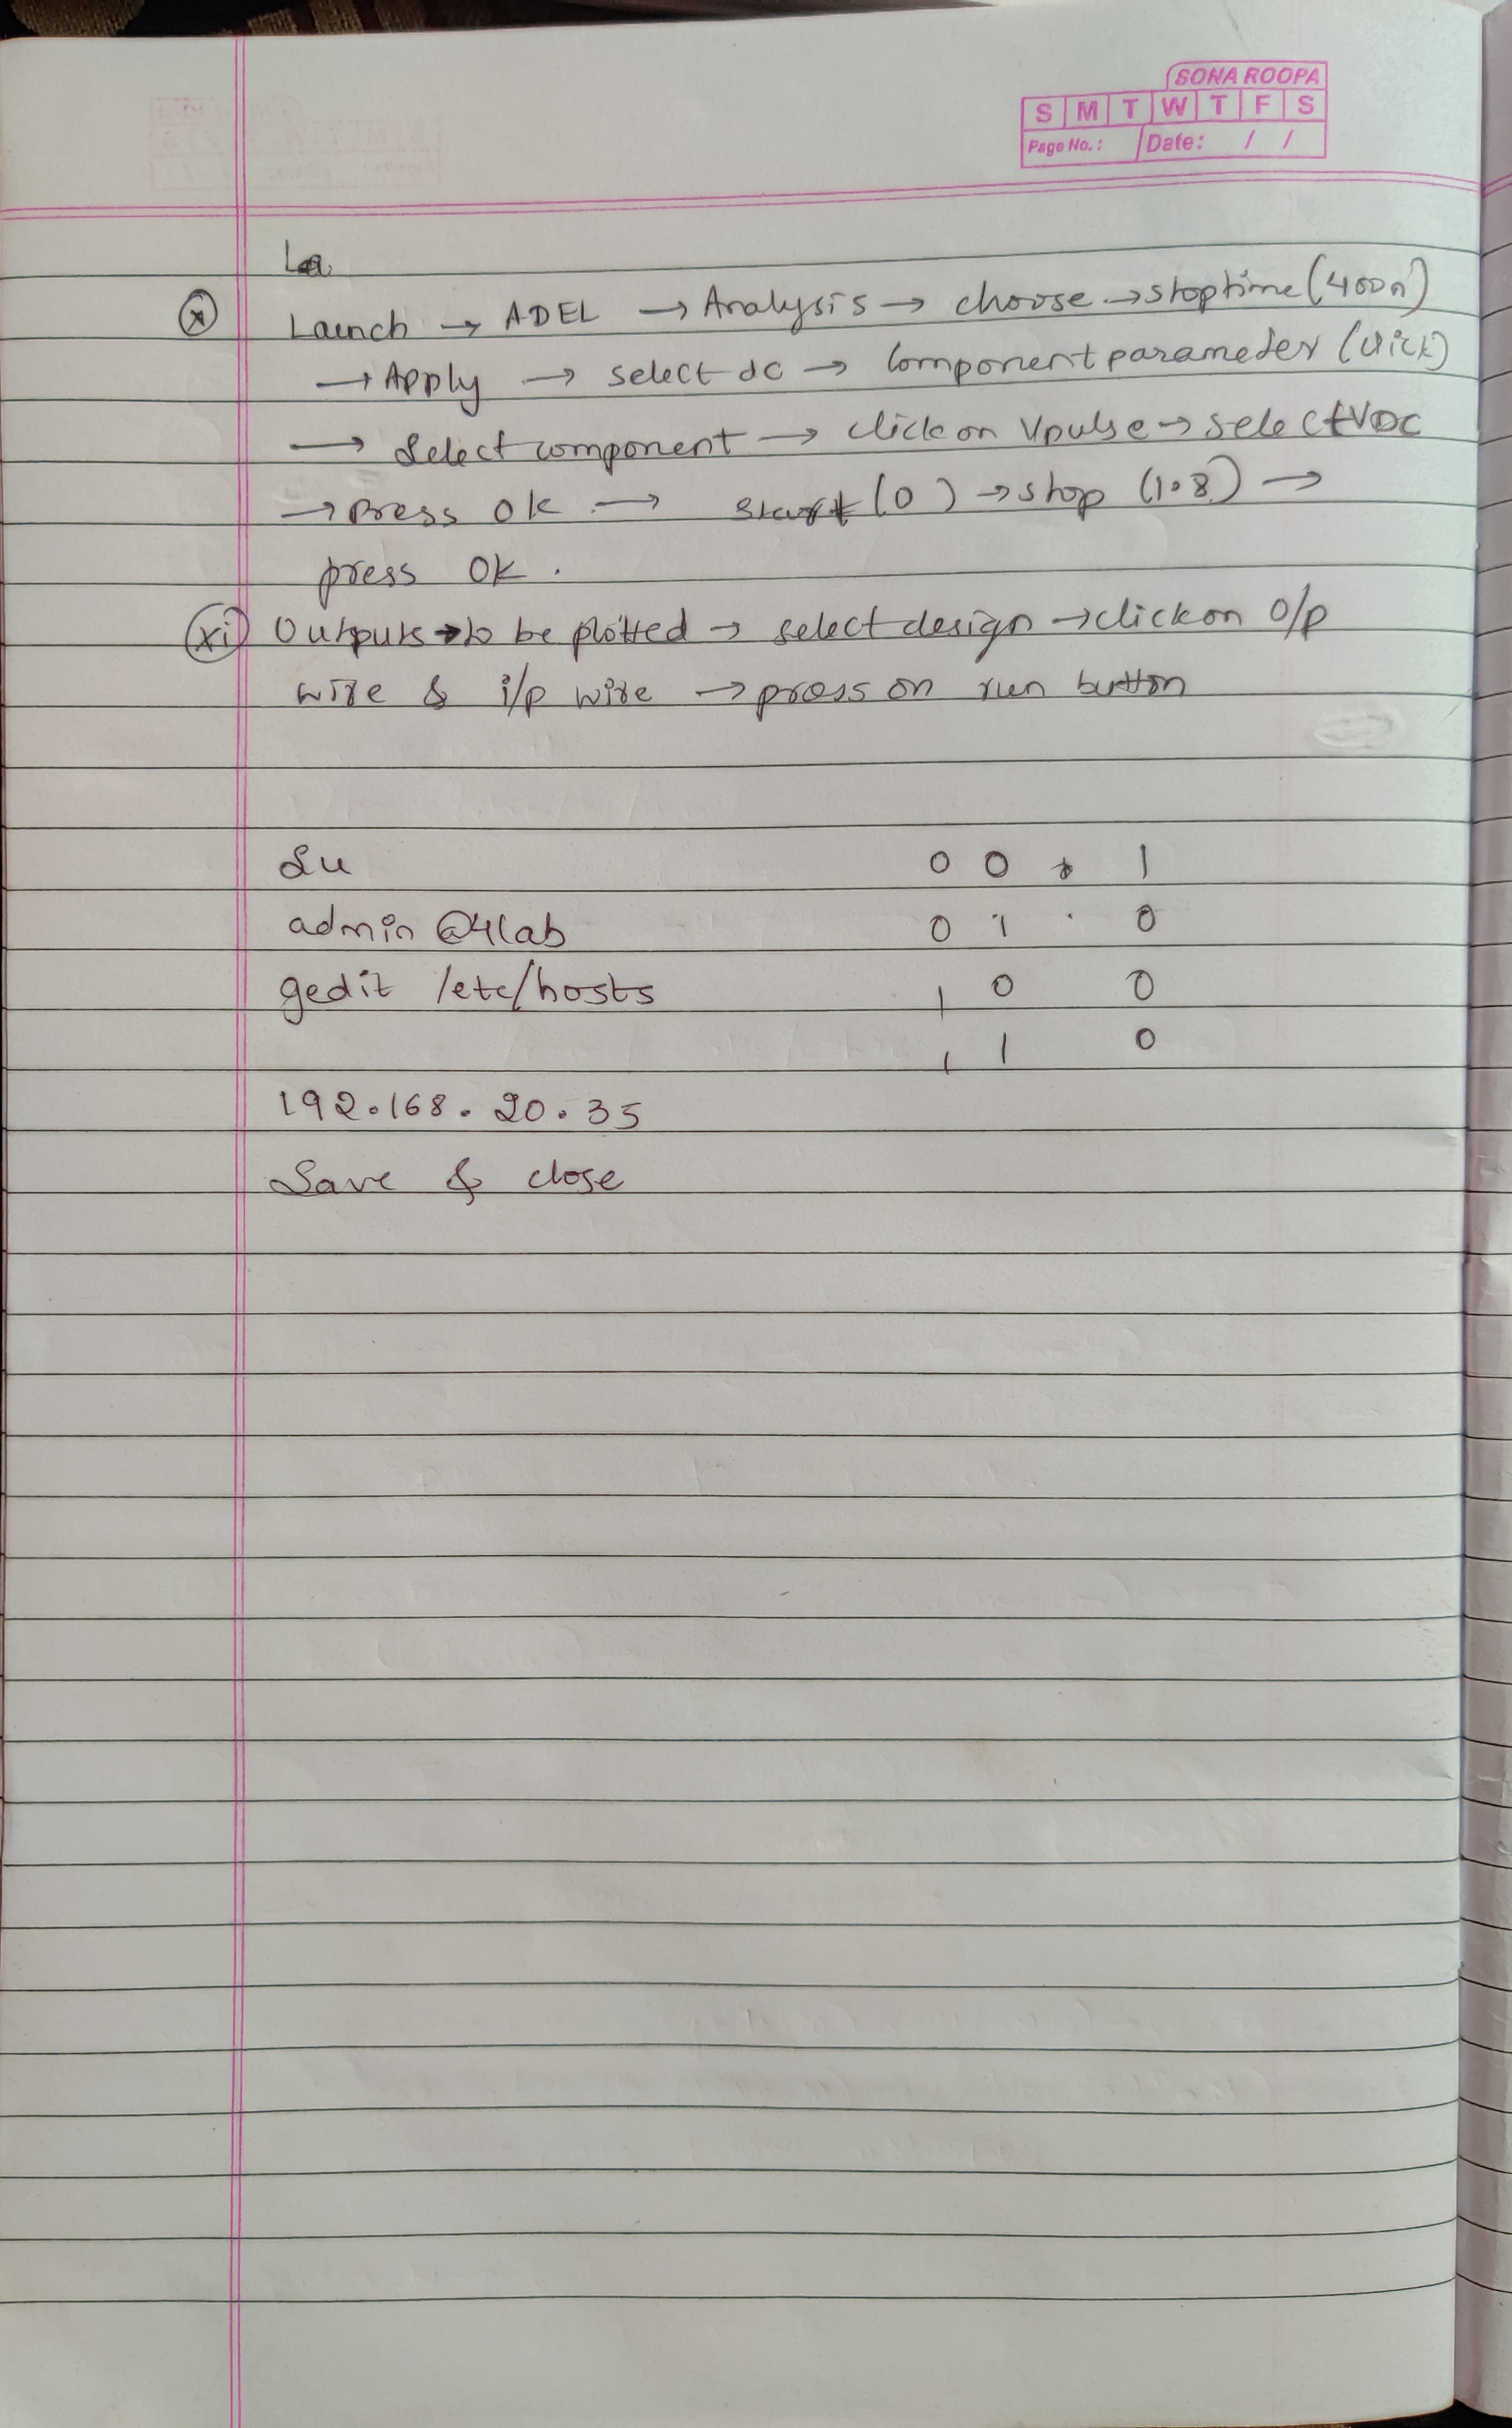 SONA ROOPA
S M T W T F S
Page No.: Date: / /
La
(x) Launch → ADEL → Analysis → choose → stoptime (400n)
→ Apply → select dc → component parameter (click)
→ Select component → click on Vpulse → select VDC
→ press OK → start (0) → stop (1.8) →
press OK.
(xi) Outputs → to be plotted → select design → click on o/p
wire & i/p wire → press on run button
Su 0 0 1
admin@4lab 0 1 0
gedit /etc/hosts 1 0 0
1 1 0
192.168.20.35
Save & close